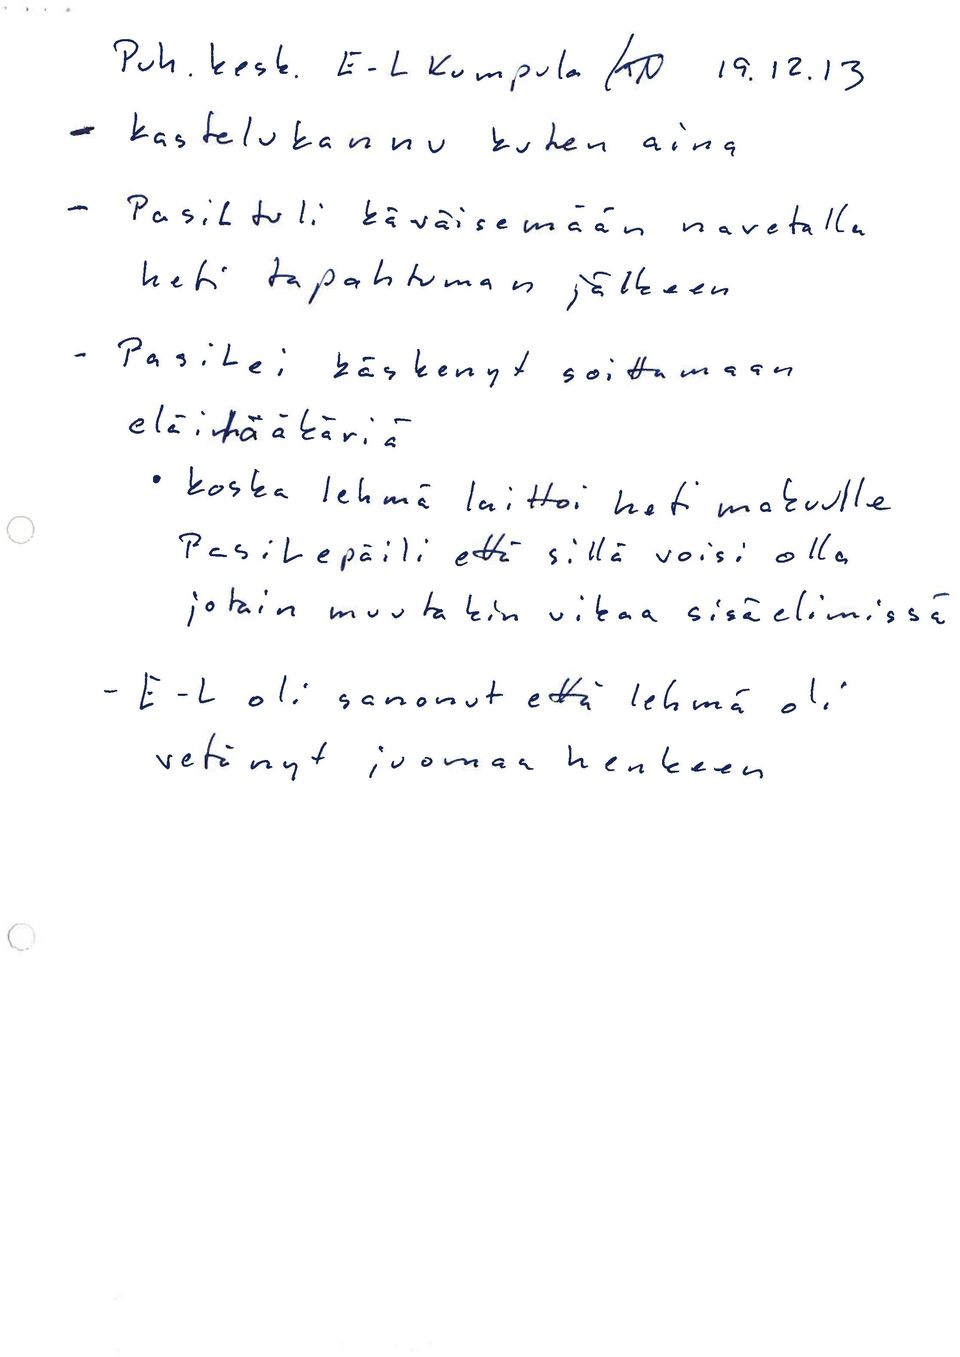 Puh. kesk. E-L Kumpula /KN 19.12.13
- kastelukannu kuten aina
- Pasi L tuli käväisemään navetalla
heti tapahtuman jälkeen
- Pasi L ei käskenyt soittamaan
eläinlääkäriä
• koska lehmä laittoi heti makuulle
Pasi L epäili että sillä voisi olla
jotain muutakin vikaa sisäelimissä
- E-L oli sanonut että lehmä oli
vetänyt juomaa henkeen